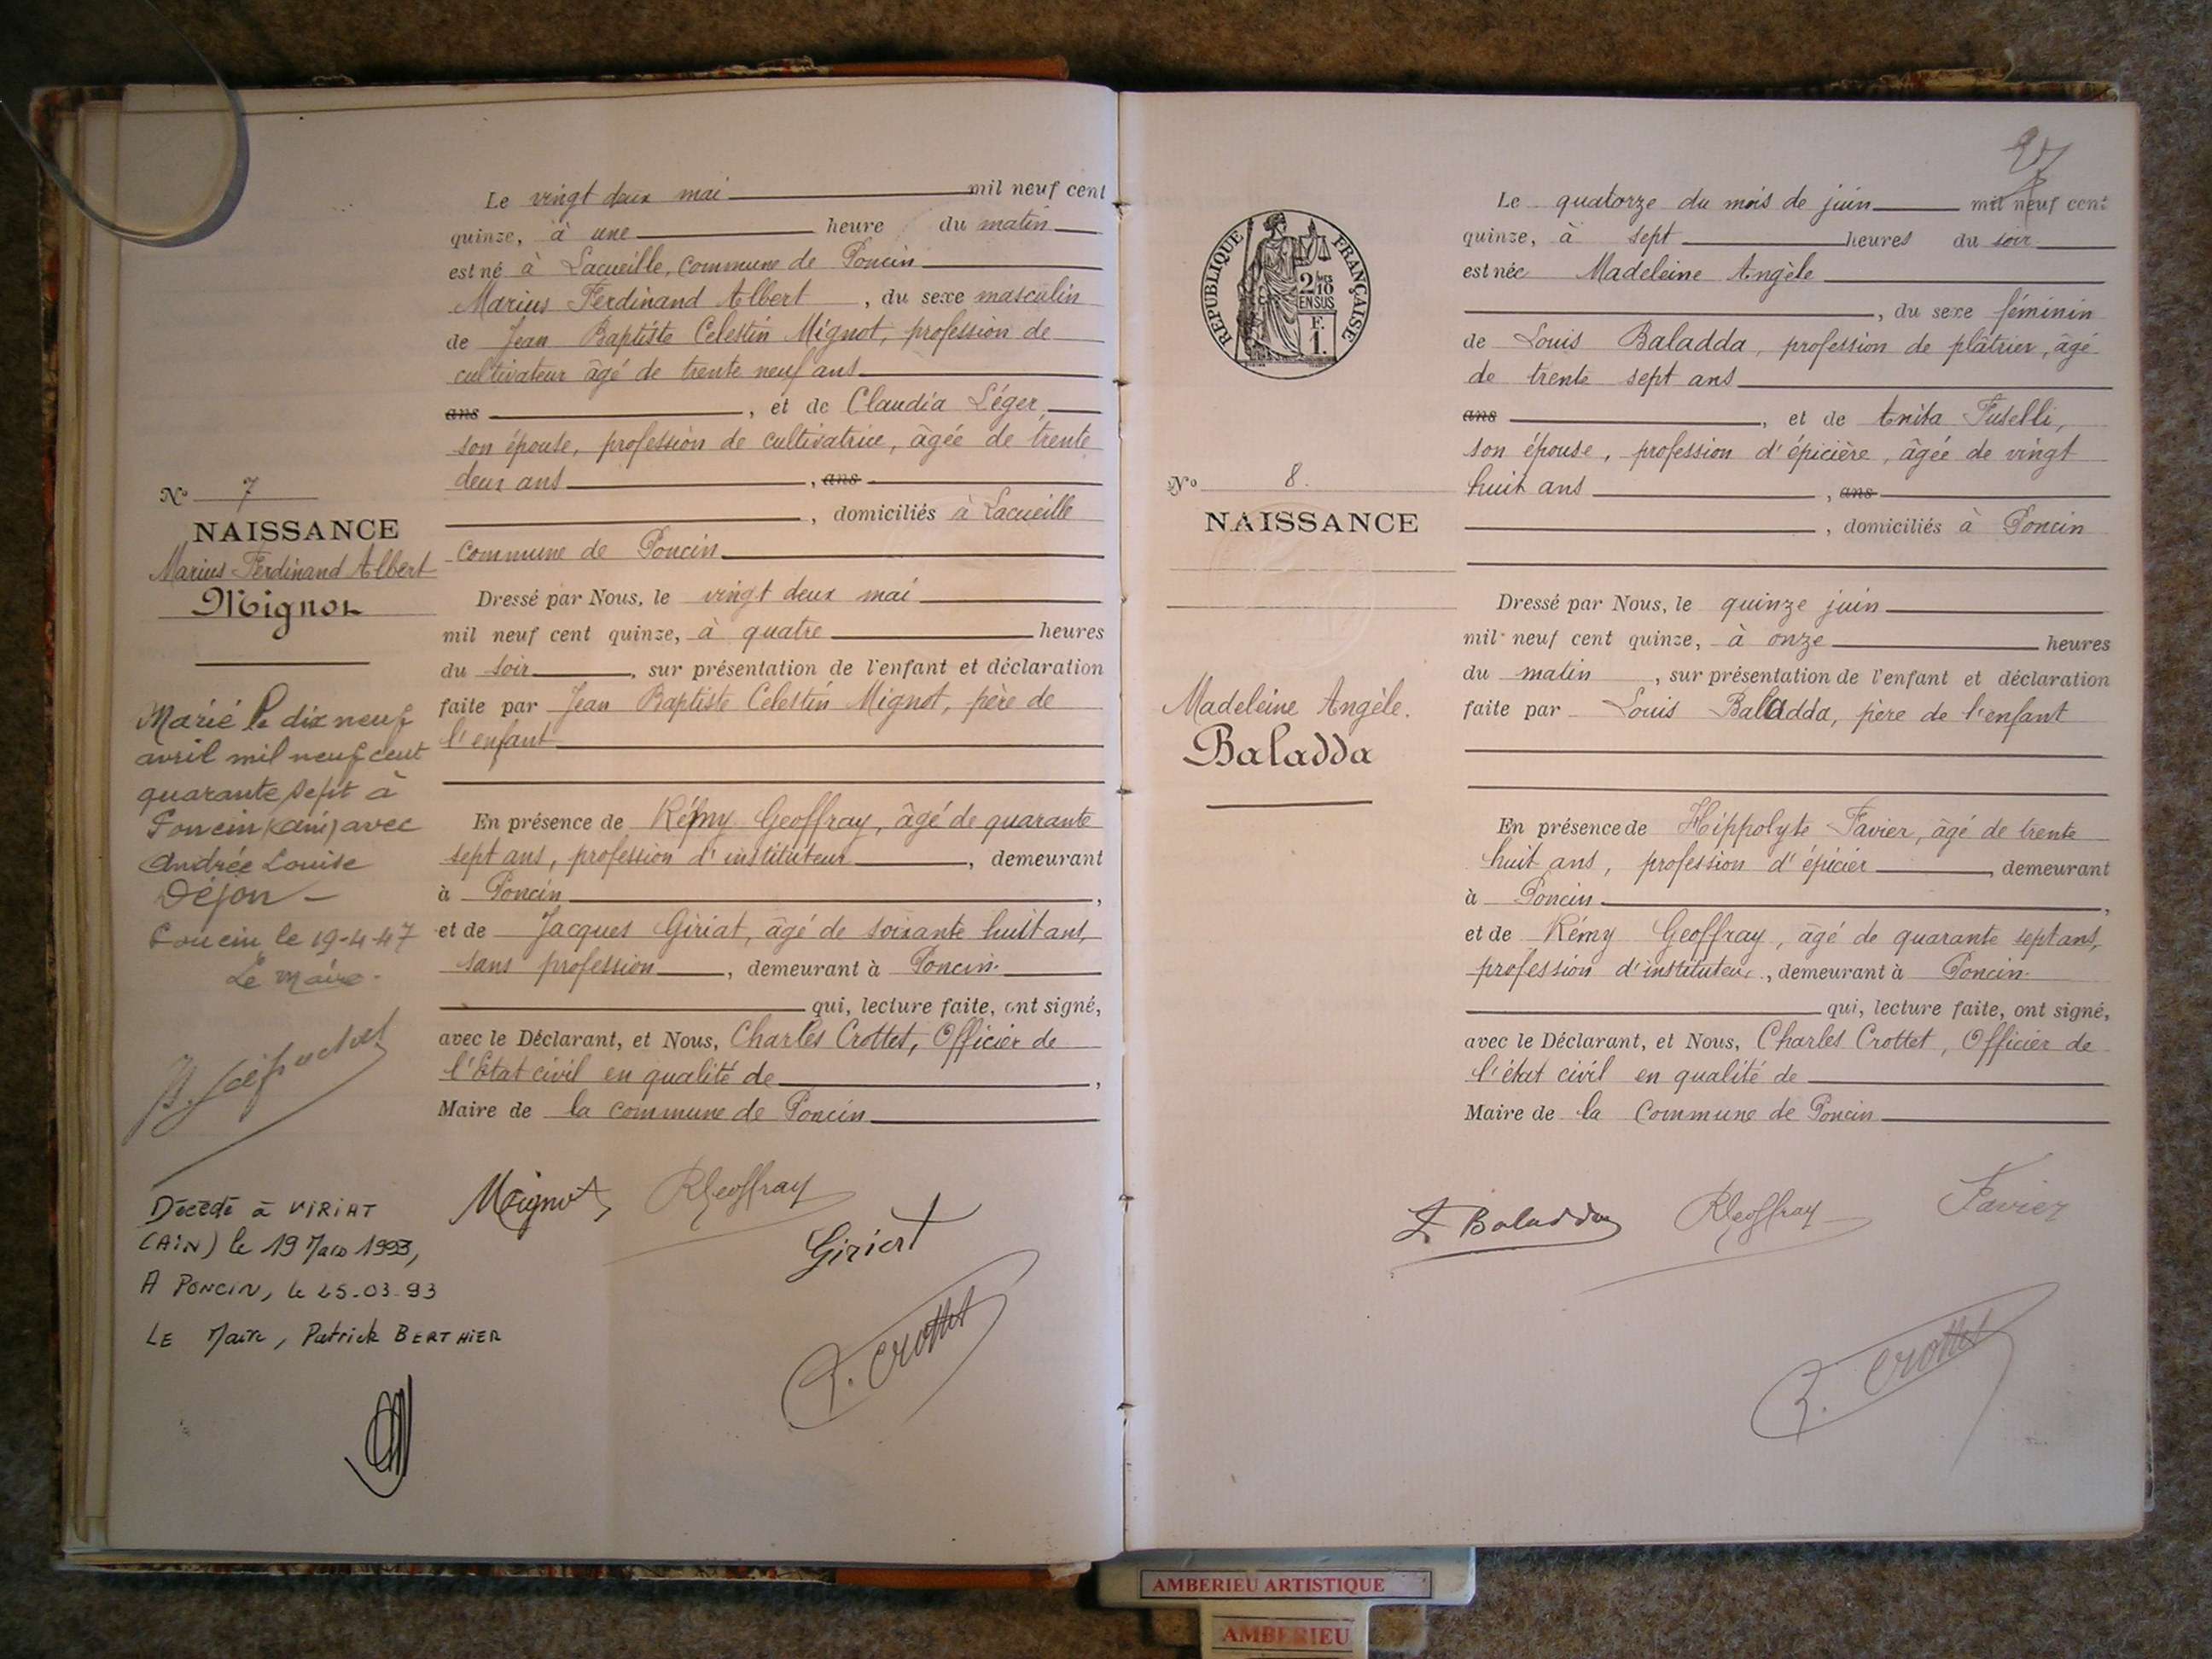 Le vingt deux mai mil neuf cent
quinze, à une heure du matin
est né à Lacueille, commune de Poncin
Marius Ferdinand Albert, du sexe masculin
de Jean Baptiste Celestin Mignot, profession de
cultivateur âgé de trente neuf ans
ans, et de Claudia Léger,
son épouse, profession de cultivatrice, âgée de trente
deux ans, ans
, domiciliés à Lacueille
commune de Poncin
Dressé par Nous, le vingt deux mai
mil neuf cent quinze, à quatre heures
du soir, sur présentation de l'enfant et déclaration
faite par Jean Baptiste Celestin Mignot, père de
l'enfant
En présence de Rémy Geoffray, âgé de quarante
sept ans, profession d'instituteur, demeurant
à Poncin,
et de Jacques Giriat, âgé de soixante huit ans,
sans profession, demeurant à Poncin.
qui, lecture faite, ont signé,
avec le Déclarant, et Nous, Charles Crottet, Officier de
l'Etat civil en qualité de,
Maire de la commune de Poncin
Mignot RGeoffray
Giriat
C. Crottet
No 7
NAISSANCE
Marius Ferdinand Albert
Mignot
Marié le dix neuf
avril mil neuf cent
quarante sept à
Poncin (ain) avec
Andrée Louise
Déjon -
Poncin le 19-4-47
Le Maire.
Décédé à VIRIAT
(AIN) le 19 Mars 1993,
A PONCIN, le 25.03.93
LE Maire, Patrick BERTHIER
27
REPUBLIQUE FRANÇAISE
2/10
EN SUS
F.
1.
No 8.
NAISSANCE
Madeleine Angèle.
Baladda
Le quatorze du mois de juin mil neuf cent
quinze, à sept heures du soir
est née Madeleine Angèle
, du sexe féminin
de Louis Baladda, profession de plâtrier, âgé
de trente sept ans
ans, et de Anita Fuselli,
son épouse, profession d'épicière, âgée de vingt
huit ans, ans
, domiciliés à Poncin
Dressé par Nous, le quinze juin
mil neuf cent quinze, à onze heures
du matin, sur présentation de l'enfant et déclaration
faite par Louis Baladda, père de l'enfant
En présence de Hippolyte Favier, âgé de trente
huit ans, profession d'épicier, demeurant
à Poncin,
et de Rémy Geoffray, âgé de quarante sept ans,
profession d'instituteur, demeurant à Poncin.
qui, lecture faite, ont signé,
avec le Déclarant, et Nous, Charles Crottet, Officier de
l'état civil en qualité de
Maire de la Commune de Poncin
L Baladda RGeoffray Favier
C. Crottet
AMBERIEU ARTISTIQUE
AMBERIEU